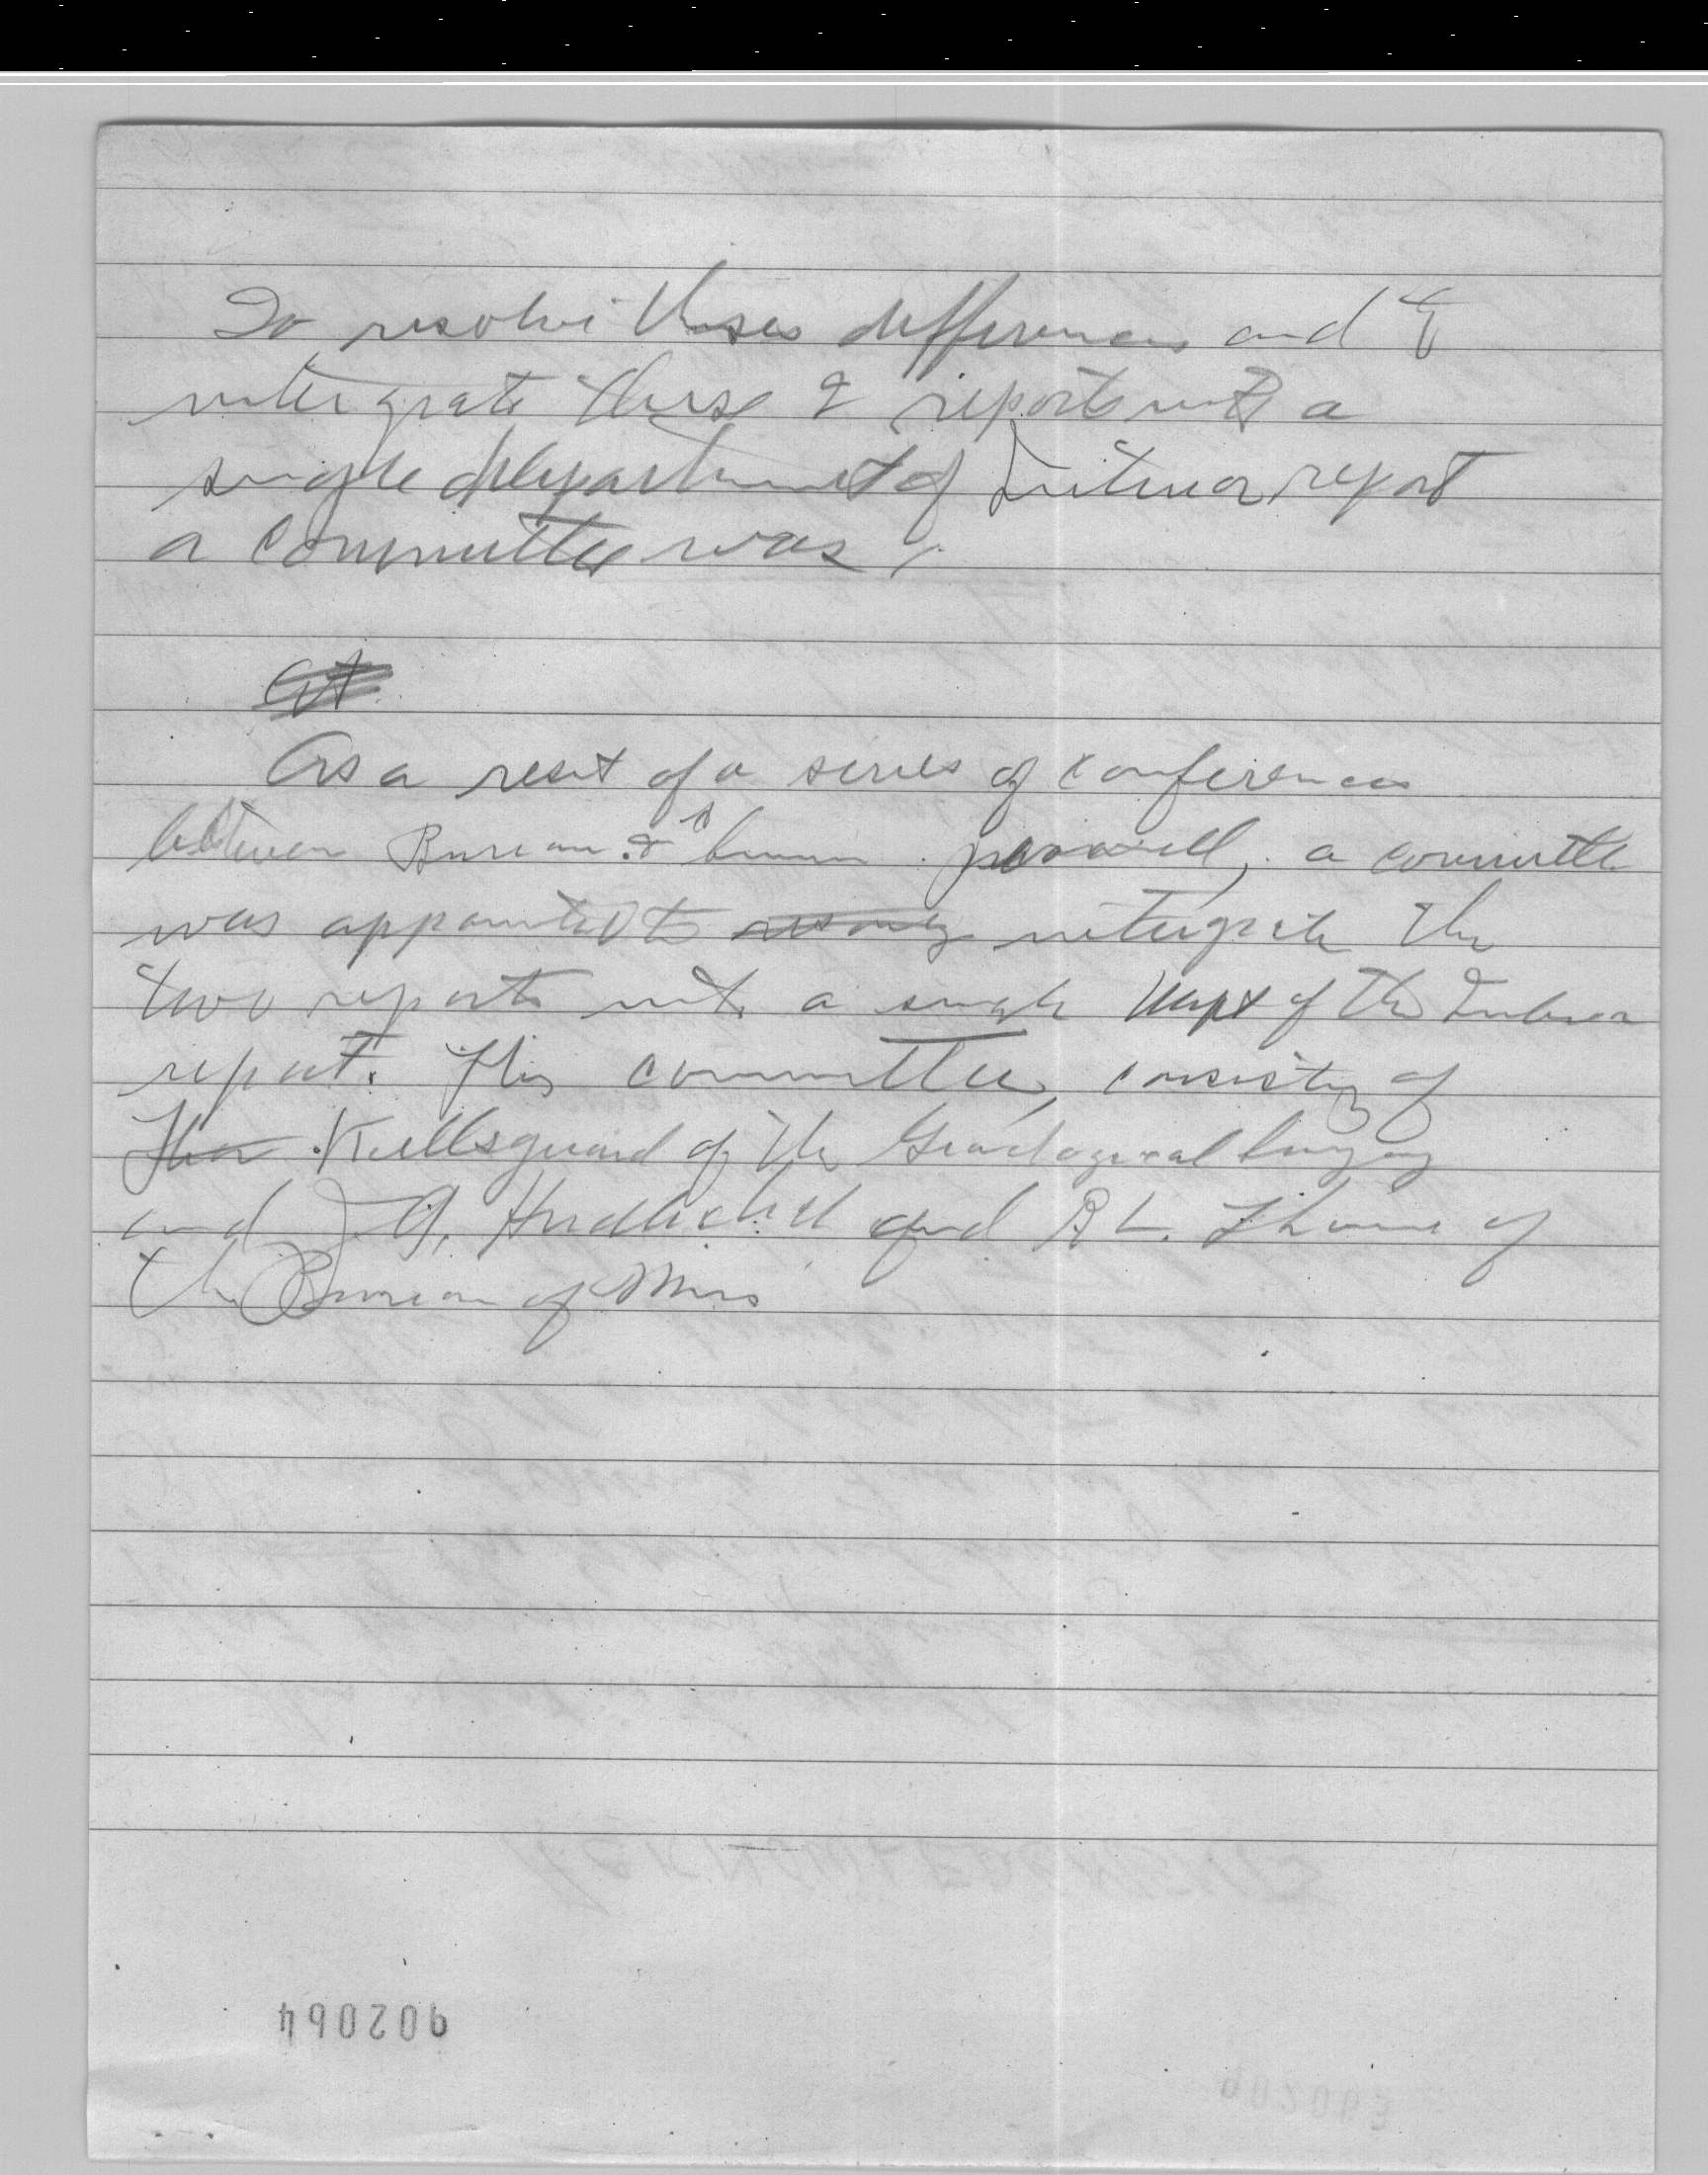 To resolve these differences and &
integrate these 2 reports into a
single department of Interior report
a committee was
As a result of a series of conferences
between Bureau & personell, a committee
was appointed to integrate the
two reports into a single Dept of the Interior
report. This committee, consisting of
of the Geological Survey
and J. and R L. Thorne of
the Bureau of Mines
902064